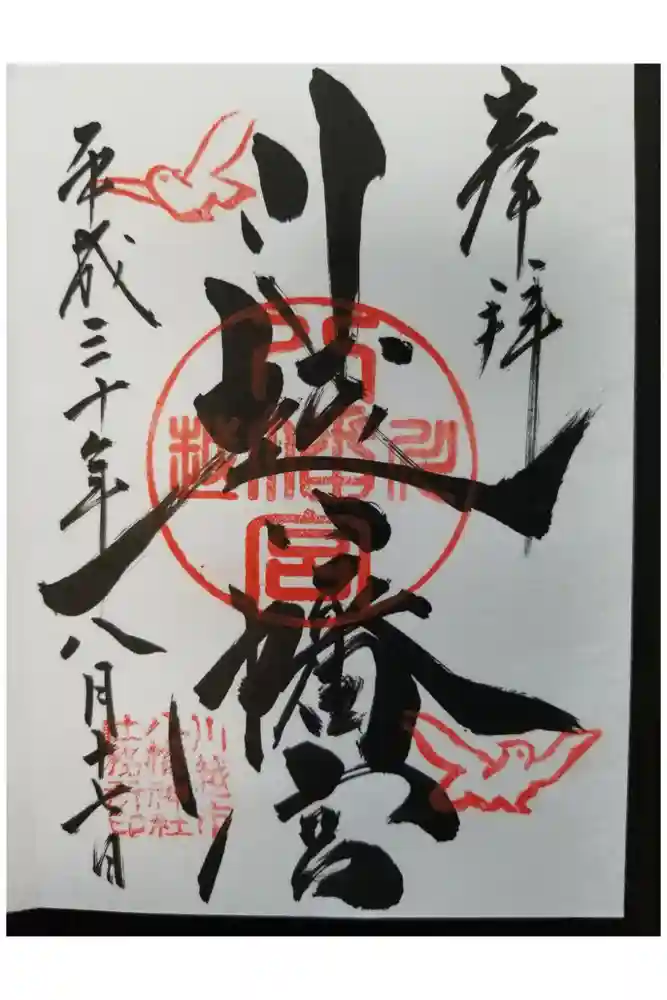 奉拝
川越八幡宮
平成三十年八月十七日
川越八幡宮
八幡神社
社務所印